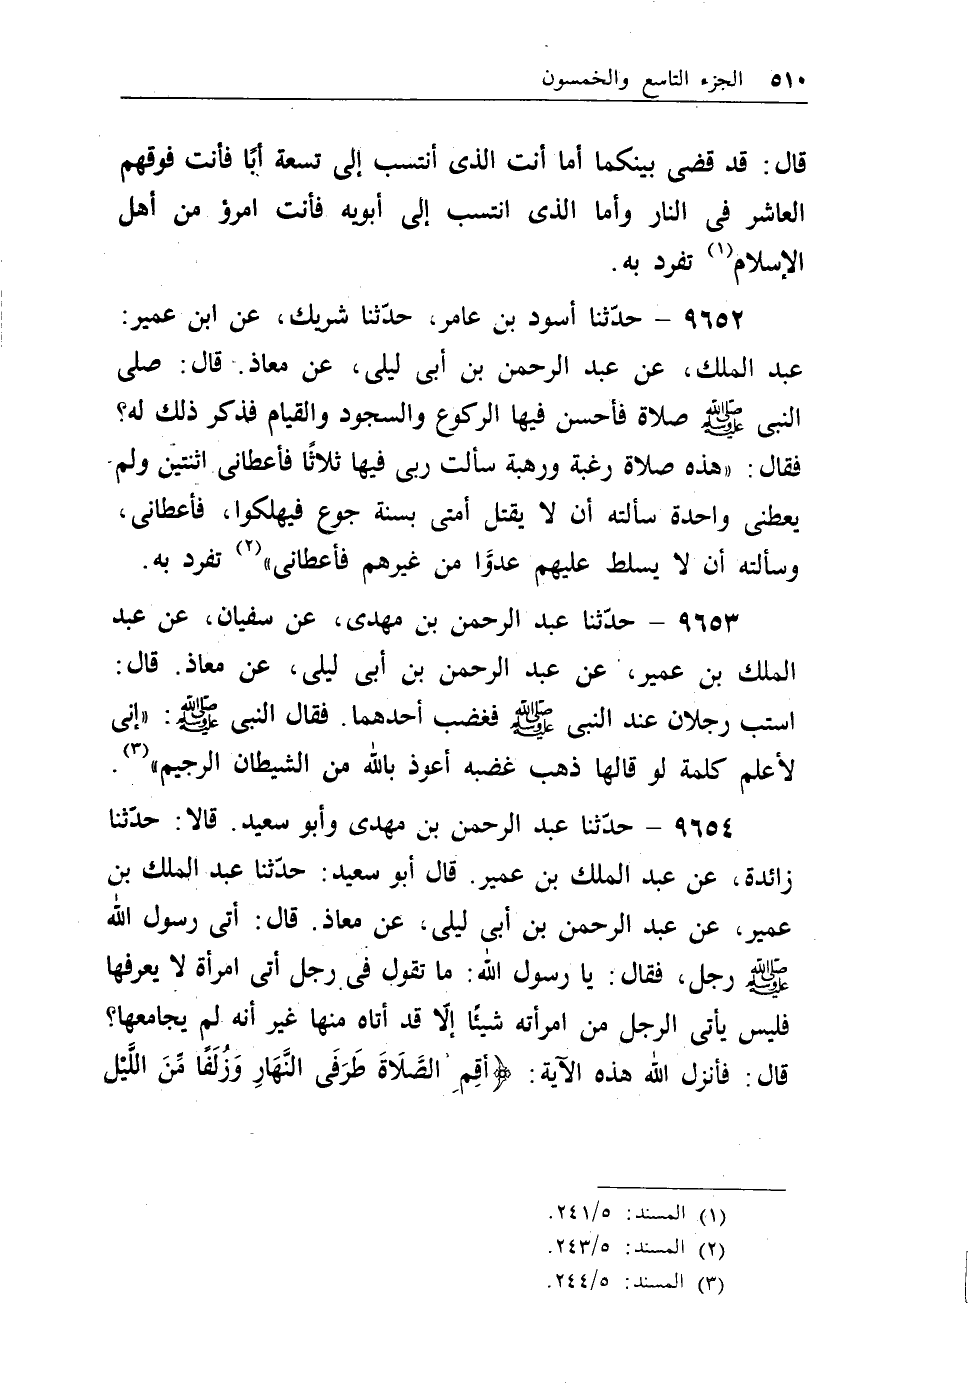 ٥١٠ الجزء التاسع والخمسون
قال: قد قضى بينكما أما أنت الذى أنتسب إلى تسعة أبًا فأنت فوقهم
العاشر فى النار وأما الذى انتسب إلى أبويه فأنت امرؤ من أهل
الإسلام(١) تفرد به.
٩٦٥٢ - حدّثنا أسود بن عامر، حدّثنا شريك، عن ابن عمير:
عبد الملك، عن عبد الرحمن بن أبى ليلى، عن معاذ. قال: صلى
النبى ﷺ صلاة فأحسن فيها الركوع والسجود والقيام فذكر ذلك له؟
فقال: «هذه صلاة رغبة ورهبة سألت ربى فيها ثلاثًا فأعطانى اثنتين ولم
يعطنى واحدة سألته أن لا يقتل أمتى بسنة جوع فيهلكوا، فأعطانى،
وسألته أن لا يسلط عليهم عدوًّا من غيرهم فأعطانى»(٢) تفرد به.
٩٦٥٣ - حدّثنا عبد الرحمن بن مهدى، عن سفيان، عن عبد
الملك بن عمير، عن عبد الرحمن بن أبى ليلى، عن معاذ. قال:
استب رجلان عند النبى ﷺ فغضب أحدهما. فقال النبى ﷺ: «إنى
لأعلم كلمة لو قالها ذهب غضبه أعوذ بالله من الشيطان الرجيم»(٣).
٩٦٥٤ - حدّثنا عبد الرحمن بن مهدى وأبو سعيد. قالا: حدّثنا
زائدة، عن عبد الملك بن عمير. قال أبو سعيد: حدّثنا عبد الملك بن
عمير، عن عبد الرحمن بن أبى ليلى، عن معاذ. قال: أتى رسول الله
ﷺ رجل، فقال: يا رسول الله: ما تقول فى رجل أتى امرأة لا يعرفها
فليس يأتى الرجل من امرأته شيئًا إلّا قد أتاه منها غير أنه لم يجامعها؟
قال: فأنزل الله هذه الآية: ﴿أقِمِ الصَّلَاةَ طَرَفَى النَّهَارِ وَزُلَفًا مِّنَ اللَّيْل
(١) المسند: ٢٤١/٥.
(٢) المسند: ٢٤٣/٥.
(٣) المسند: ٢٤٤/٥.